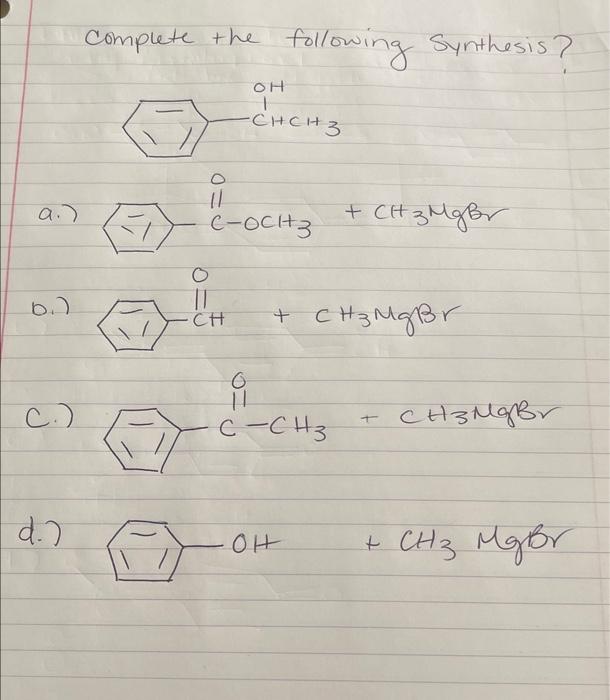 Complete the following Synthesis?
OH
CHCH3
O
a.) C-OCH3 + CH3MgBr
O
b.) CH + CH3MgBr
O
c.) C-CH3 + CH3MgBr
d.) OH + CH3 MgBr